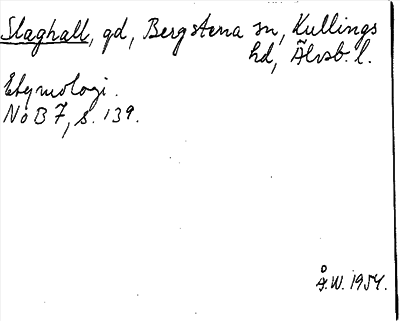 Slaghall, gd, Bergstena sn, Kullings
hd, Älvsb. l.
Etymologi.
NoB 7, s. 139.
Å.W. 1954.